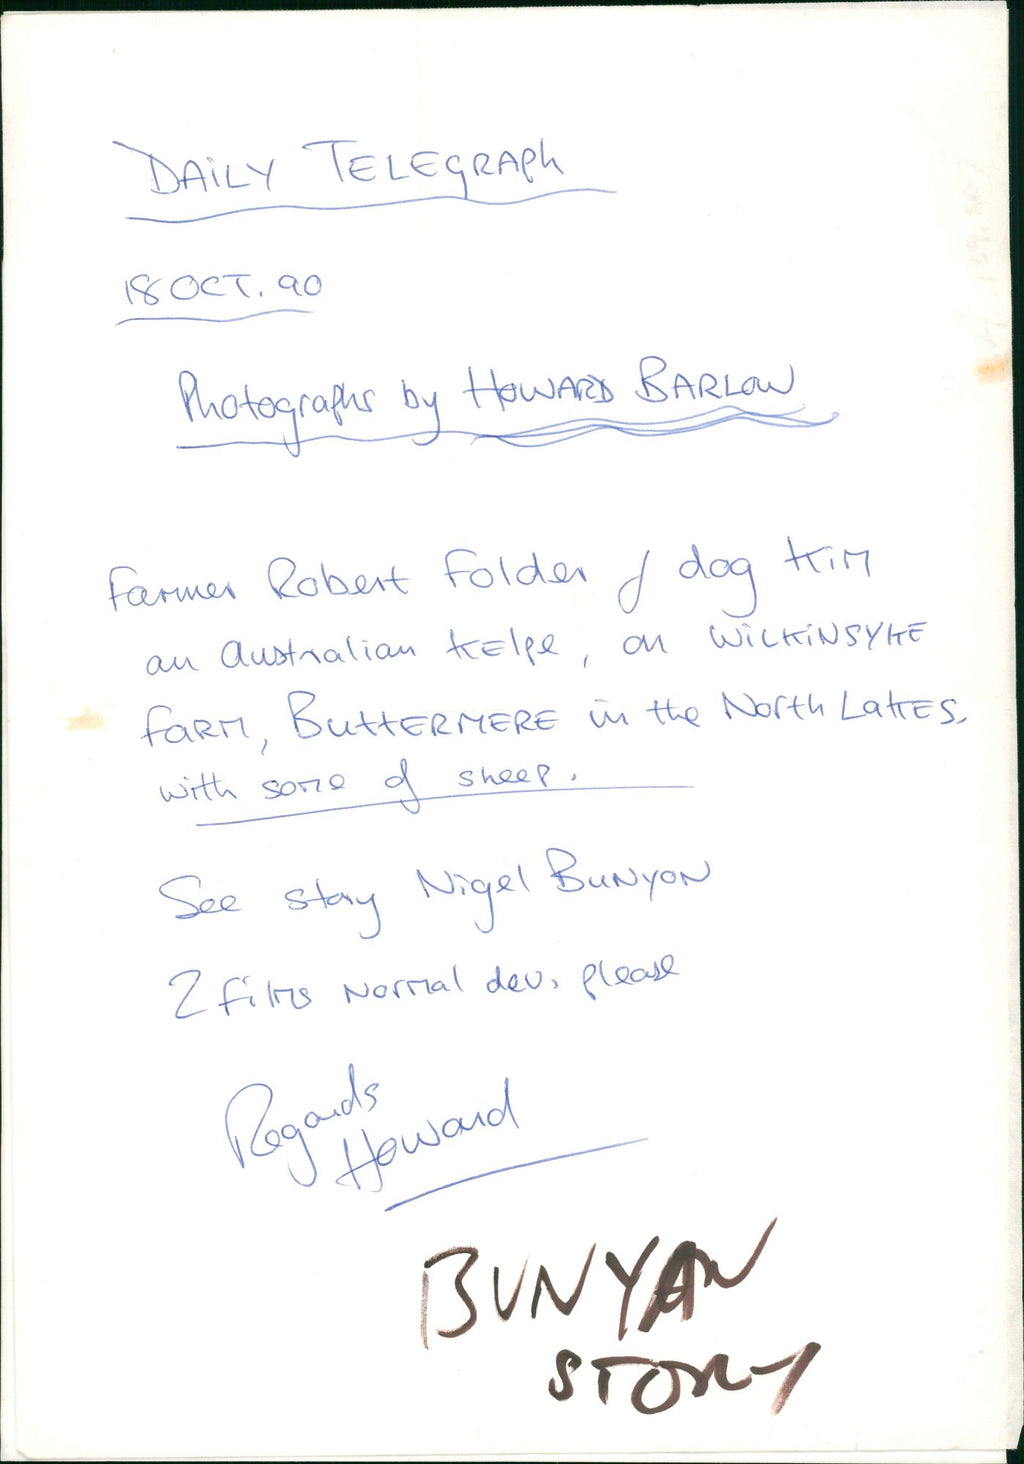 DAILY TELEGRAPh
18 OCT. 90
Photographs by HOWARD BARLOW
Farmer Robert Folder & dog KIM
an Australian KElpe, on WILKINSYKE
FARM, BuTTERMERE in the North LAKES.
with some of sheep.
See story Nigel BUNYON
2 films Normal dev. please
Regards
Howard
BUNYAN
STORY